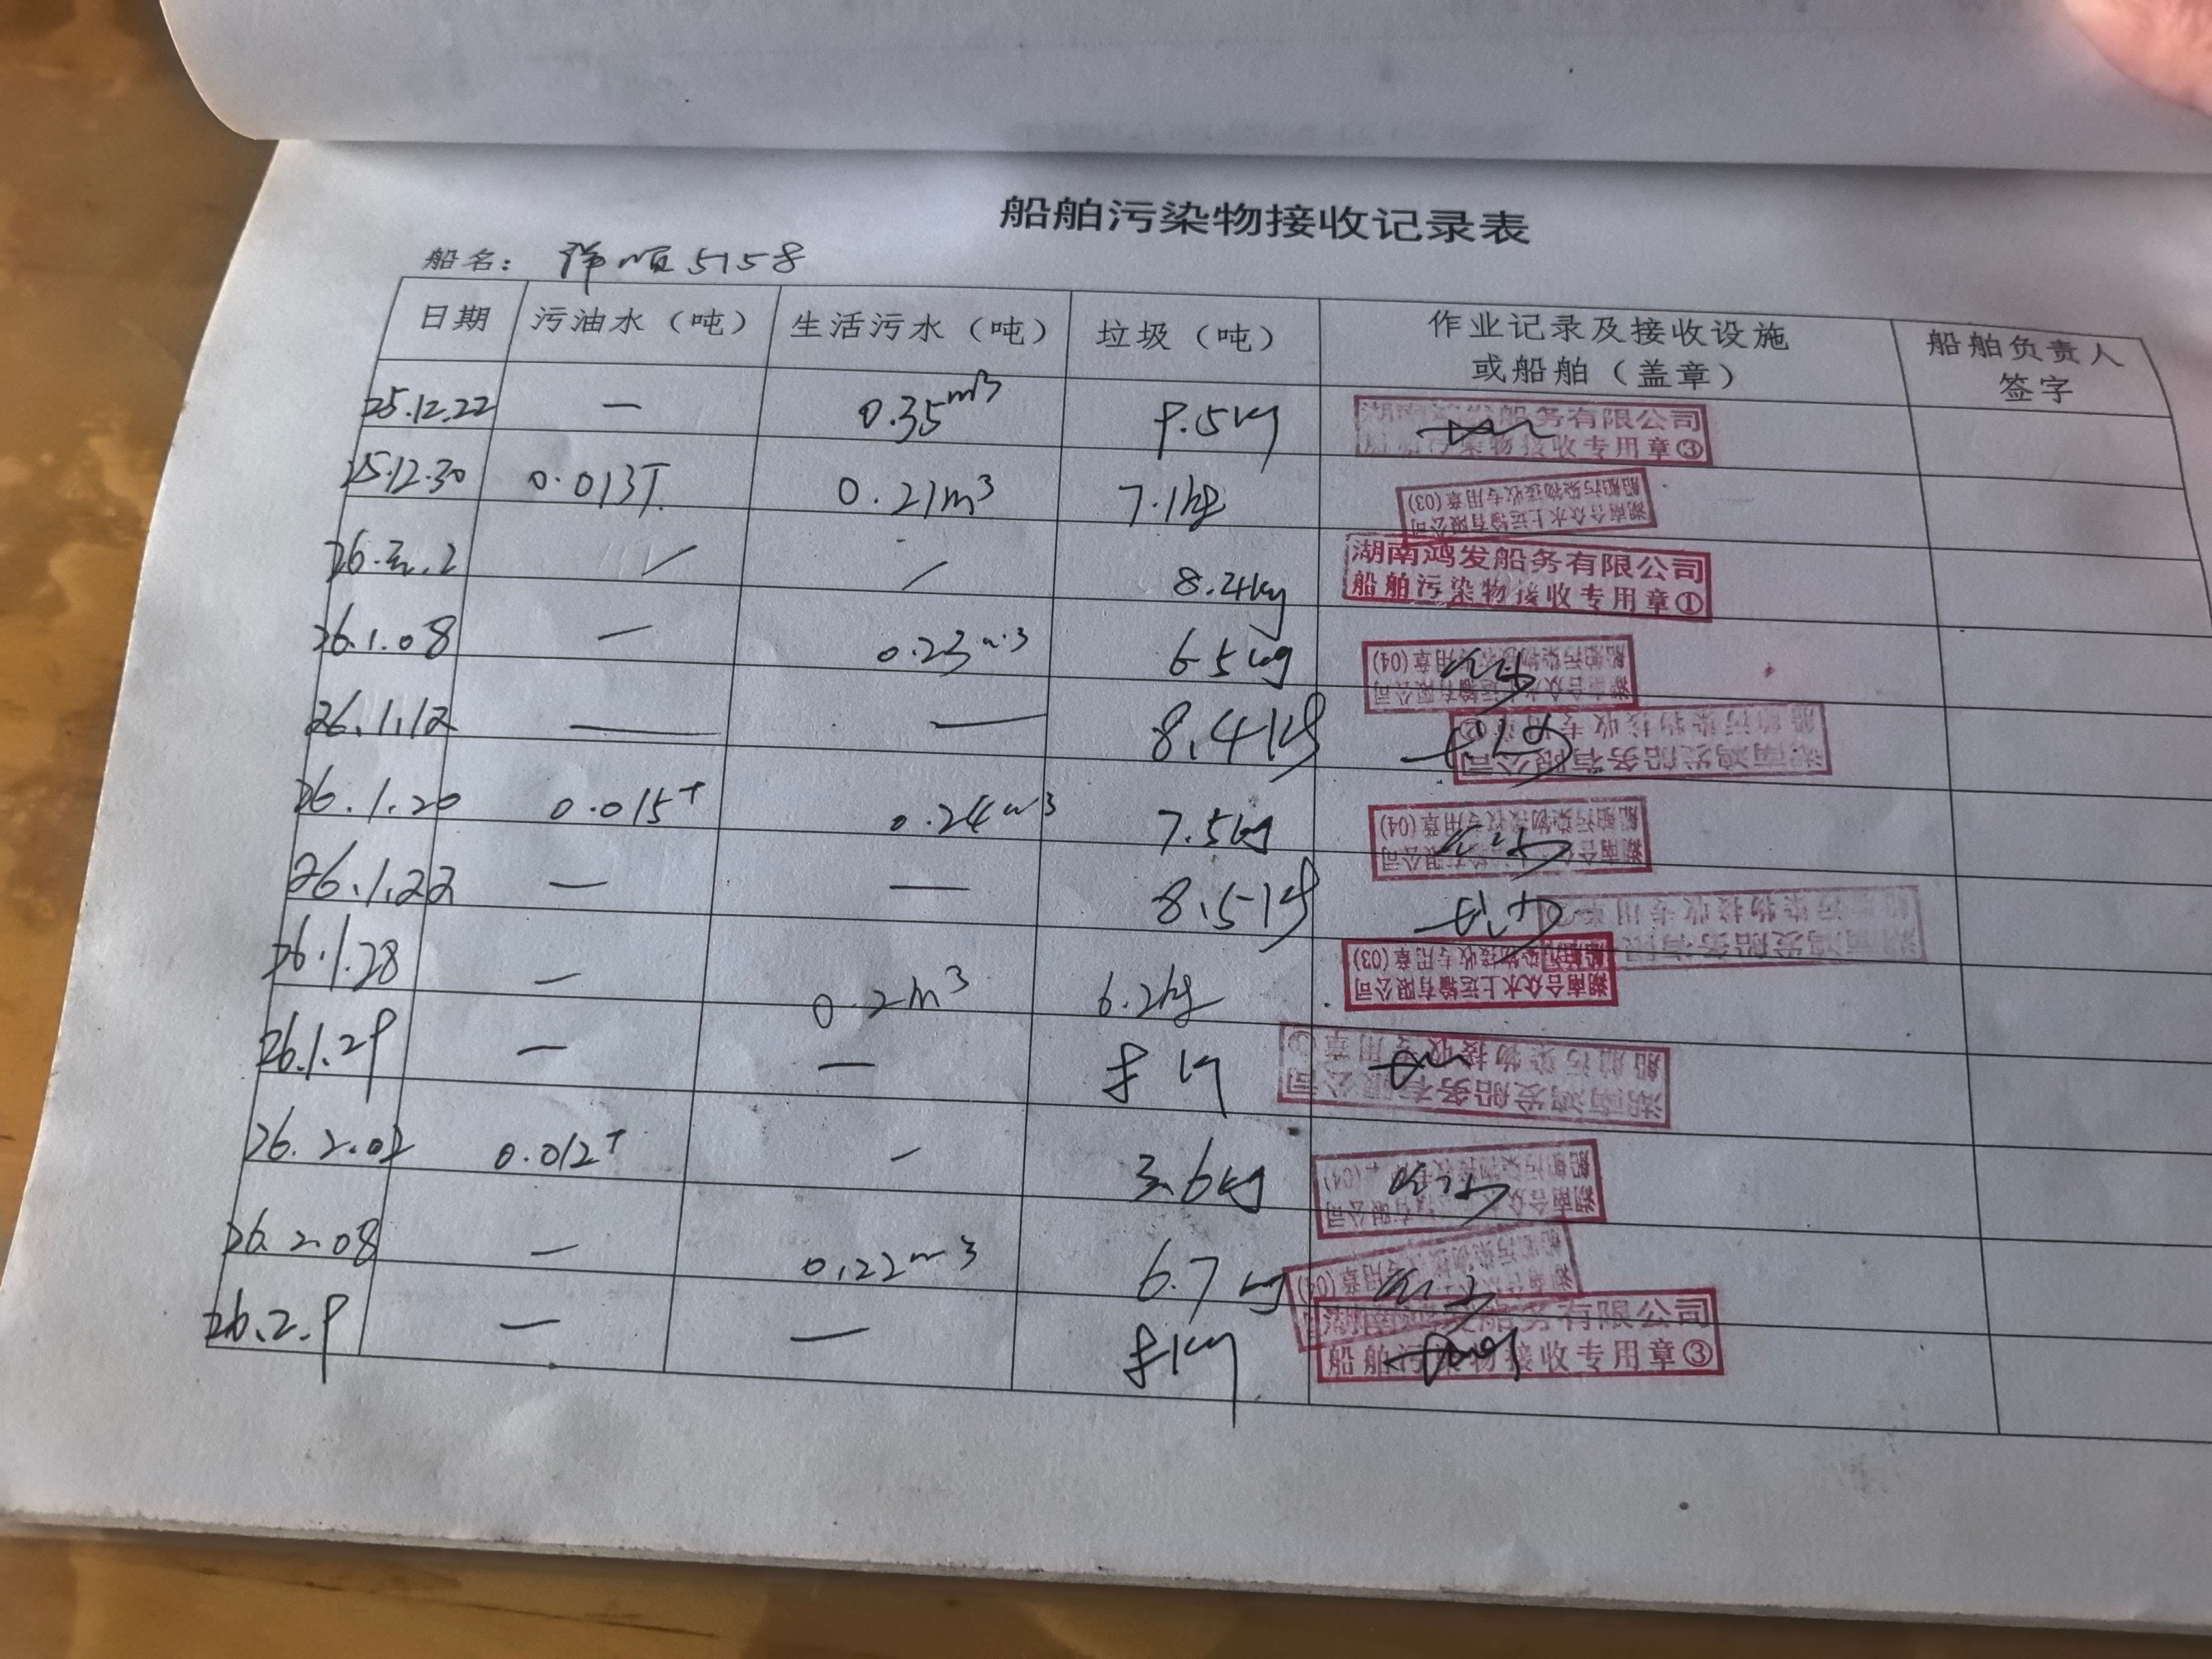 船舶污染物接收记录表
船名： 祥顺5158
日期 污油水（吨） 生活污水（吨） 垃圾（吨） 作业记录及接收设施或船舶（盖章） 船舶负责人签字
25.12.22 — 0.35m³ 9.5kg 湖南鸿发船务有限公司 船舶污染物接收专用章③
25.12.30 0.013T. 0.21m³ 7.1kg 湖南合众水上运输有限公司 船舶污染物接收专用章(03)
26.2 / / 8.2kg 湖南鸿发船务有限公司 船舶污染物接收专用章①
26.1.08 — 0.23m³ 6.5kg 湖南合众水上运输有限公司 船舶污染物接收专用章(04)
26.1.12 — — 8.4kg 湖南鸿发船务有限公司 船舶污染物接收专用章
26.1.20 0.015T 0.24m³ 7.5kg 湖南合众水上运输有限公司 船舶污染物接收专用章(04)
26.1.22 — — 8.5kg 湖南鸿发船务有限 船舶污染物接收专用章
26.1.28 — 0.2m³ 6.2kg 湖南合众水上运输有限公司 船舶污染物接收专用章(03)
26.1.29 — — 8kg 湖南鸿发船务有限公司 船舶污染物接收专用章③
26.2.02 0.012T — 3.6kg 湖南合众 有限公司 船舶污染物接收 (04)
26.2.08 — 0.22m³ 6.7kg 湖南合众 船舶污染物接 专用章(04)
26.2.9 — — 8kg 湖南鸿发船务有限公司 船舶污染物接收专用章③